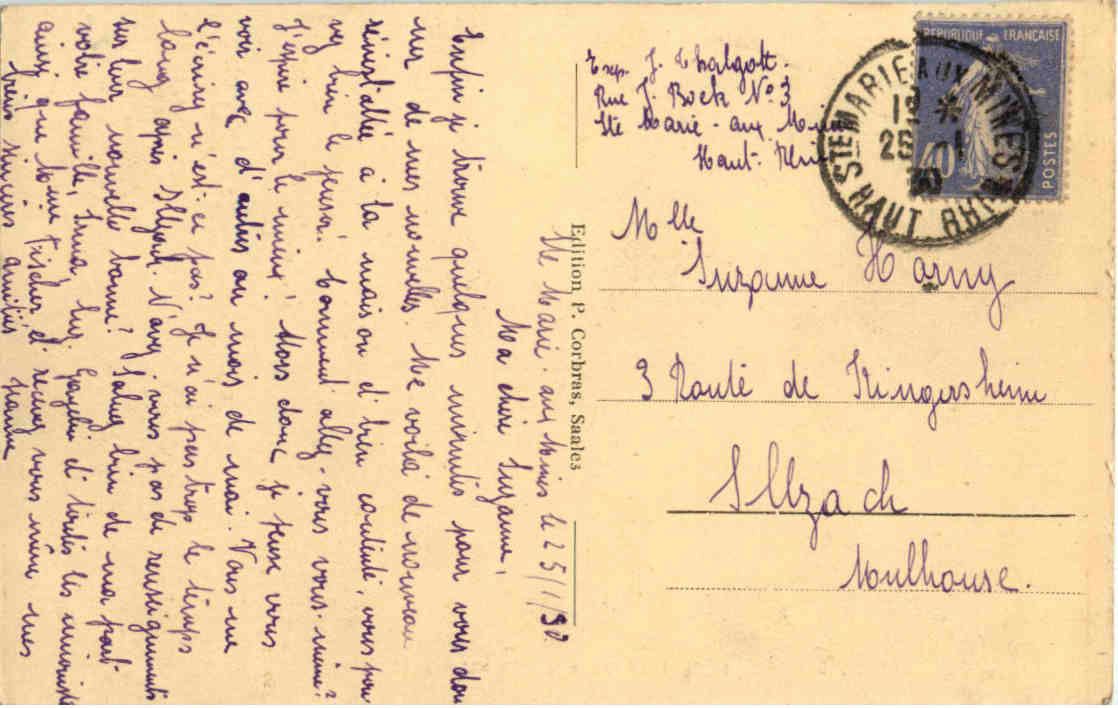 REPUBLIQUE FRANÇAISE
POSTES
40
STE MARIE AUX MINES
HAUT RHIN
Exp. J. Thalgott.
Rue J. Bock N° 3
Ste Marie-aux-Mines
Haut-Rhin
Mlle
Suzanne Harny
3 Route de Kingersheim
Illzach
Mulhouse.
Edition P. Corbras, Saales
Ste Marie-aux-Mines le 25/1/30
Ma chère Suzanne,
Enfin je trouve quelques minutes pour vous don
ner de mes nouvelles. Me voilà de nouveau
réinstallée à la maison et bien contente, vous pou
vez bien le penser! Comment allez-vous vous-même?
J'espère pour le mieux! Alors donc je pense vous
voir avec d'autres au mois de mai. Vous me
l'écrirez n'est-ce pas? Je n'ai pas trop le temps
long après Illzach. N'avez-vous pas de renseignements
sur leur nouvelle bonne? Saluez bien de ma part
votre famille, Irma, et toutes les
ainsi que Mme Fischer et recevez vous même mes
très sincères amitiés